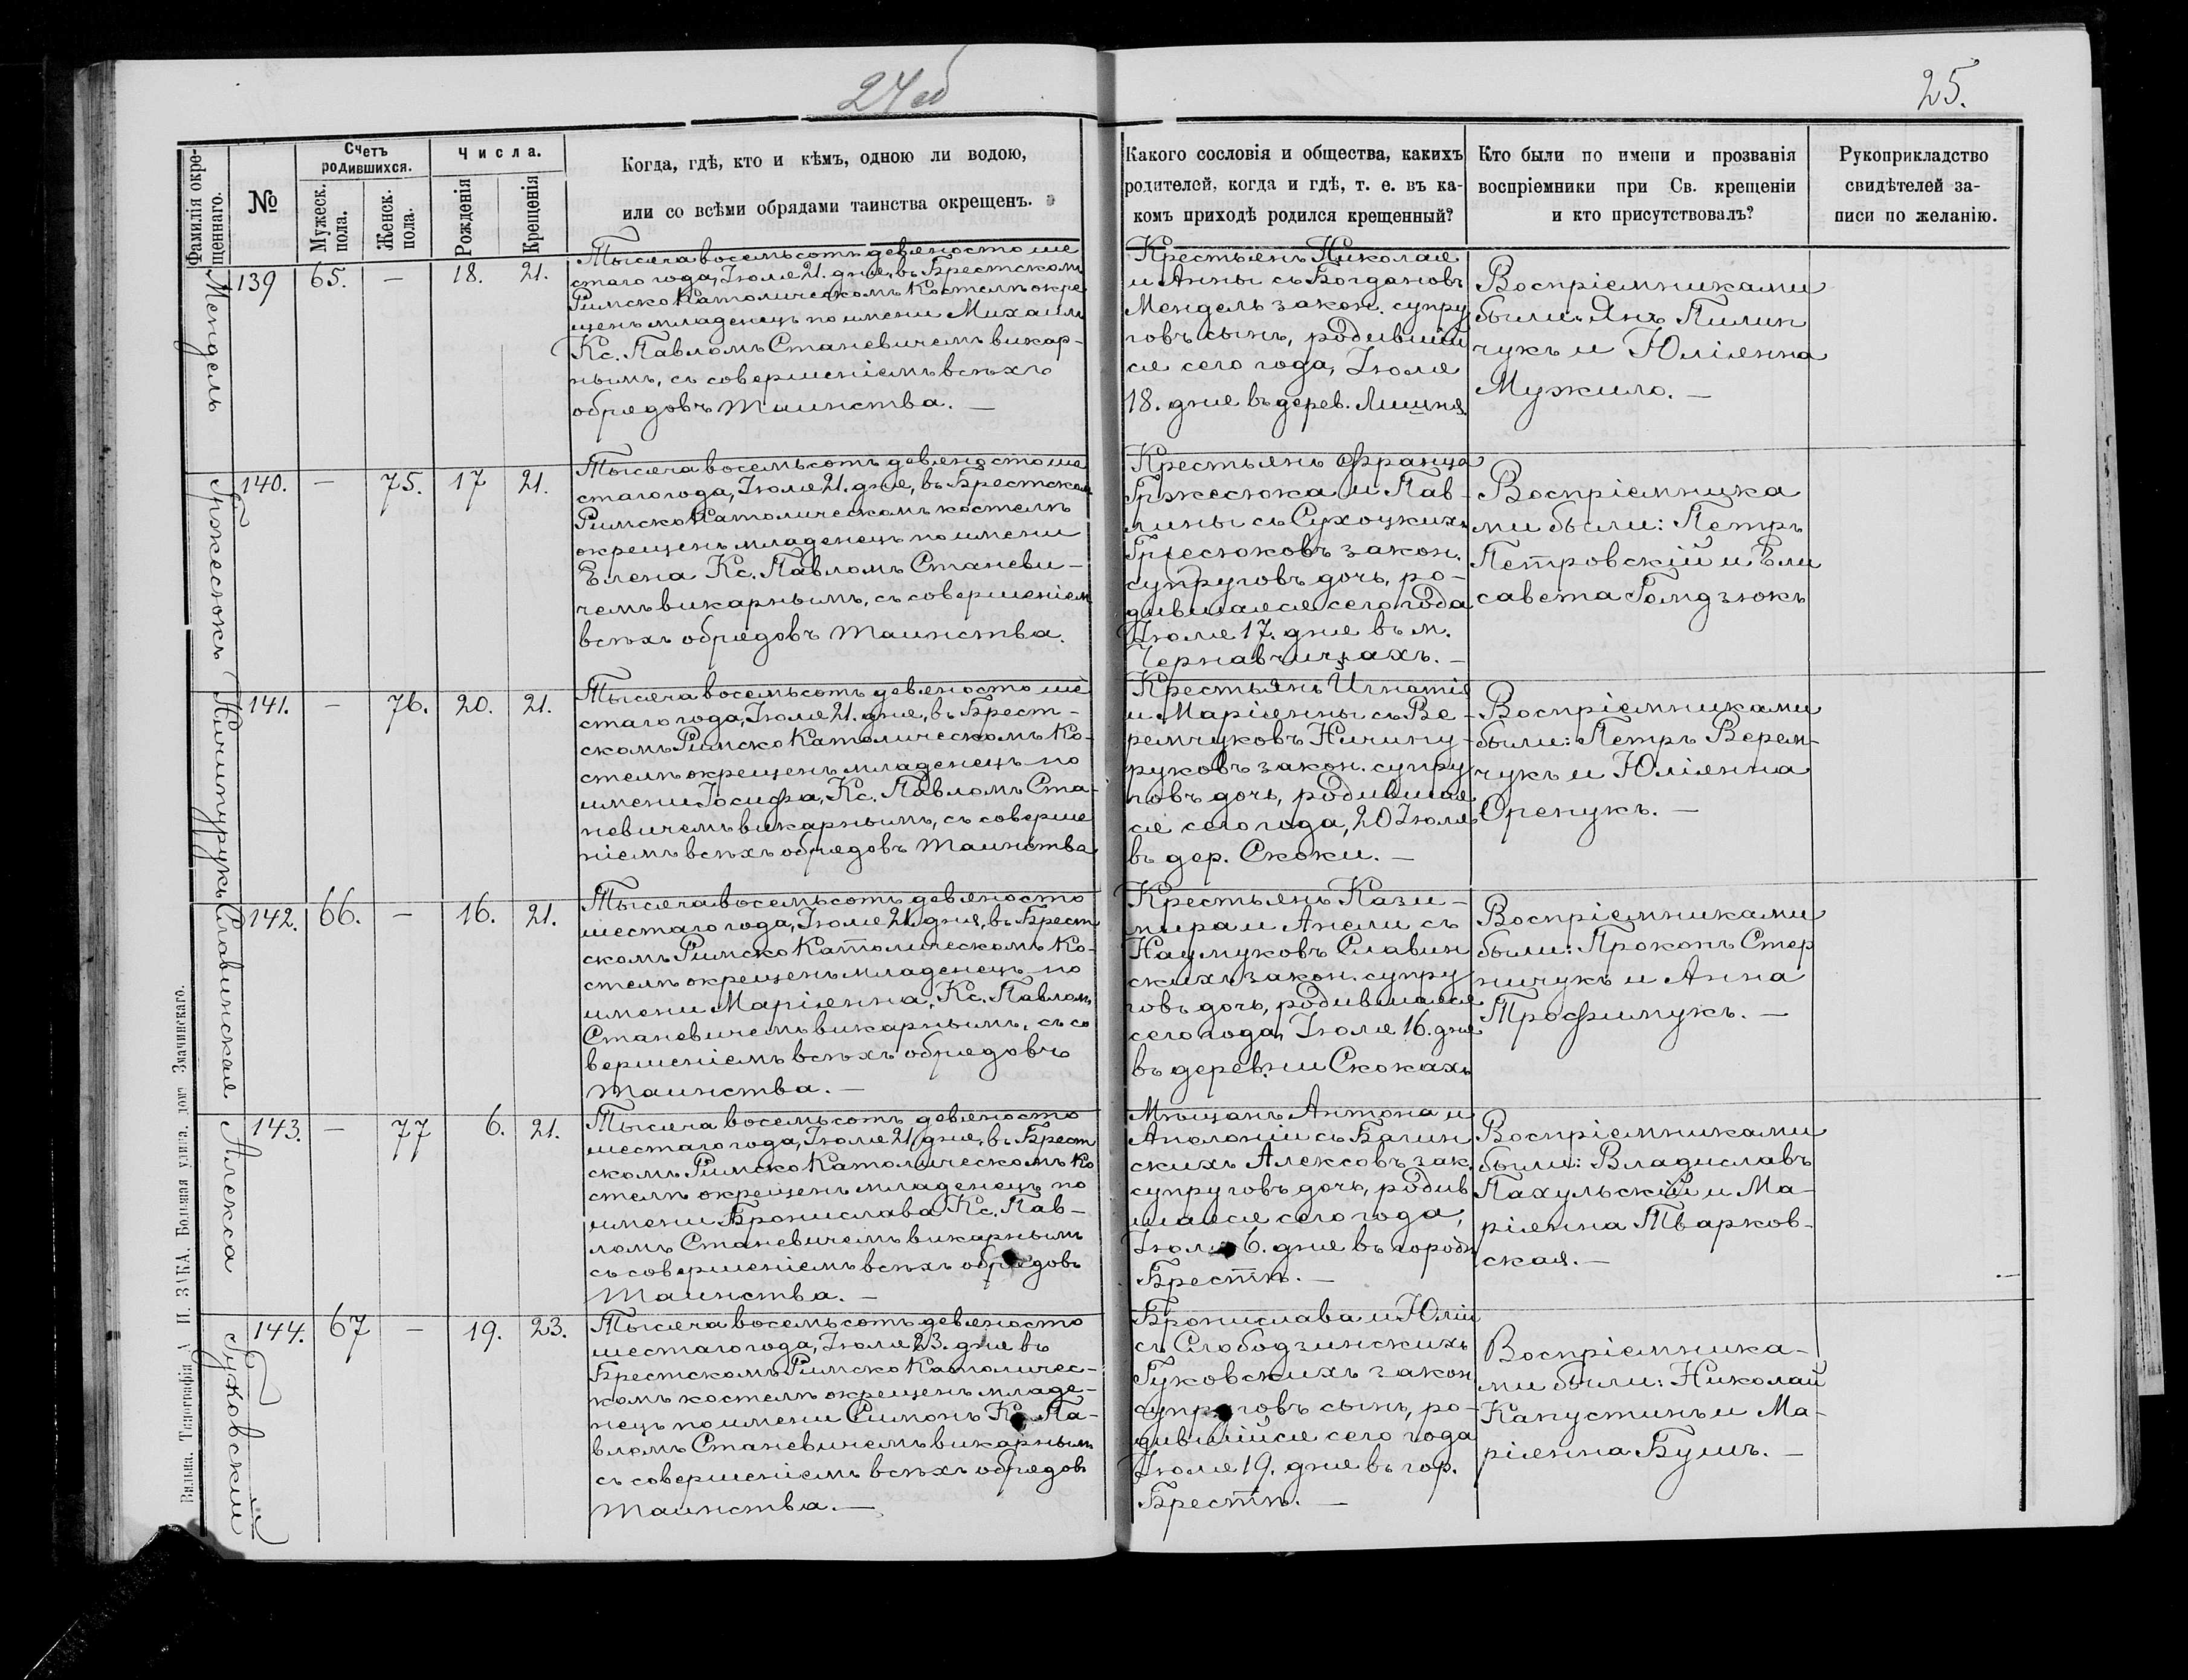 24об
25.
Фамилія окрещеннаго.
№
Счетъ родившихся.
Мужеск. пола.
Женск. пола.
Числа.
Рожденія
Крещенія
Когда, гдѣ, кто и кѣмъ, одною ли водою,
или со всѣми обрядами таинства окрещенъ.
Какого сословія и общества, какихъ
родителей, когда и гдѣ, т. е. въ ка-
комъ приходѣ родился крещенный?
Кто были по имени и прозванія
воспріемники при Св. крещеніи
и кто присутствовалъ?
Рукоприкладство
свидѣтелей за-
писи по желанію.
Мендель
139 65. — 18. 21.
Тысяча восемьсотъ девяносто ше
стаго года, Іюля 21. дня, въ Брестскомъ
Римско Католическомъ Костелѣ окре
щенъ младенецъ по имени Михаилъ
Кс. Павломъ Станевичемъ викар-
нымъ, съ совершеніемъ всѣхъ
обрядовъ таинства. —
Крестьянъ Николая
и Анны съ Богдановъ
Мендель закон. супру
говъ сынъ, родившій
ся сего года, Іюля
18. дня въ дерев. Лишня.
Воспріемниками
были Янъ Пилип
чукъ и Юліянна
Мужило. —
Гржесюкъ
140. — 75. 17 21.
Тысяча восемьсотъ девяносто ше
стаго года, Іюля 21. дня, въ Брестском
Римско Католическомъ костелѣ
окрещенъ младенецъ по имени
Елена Кс. Павломъ Станеви-
чемъ викарнымъ, съ совершеніем
всѣхъ обрядовъ таинства.
Крестьянъ Франца
Гржесюка и Пав-
лины съ Сухоцкихъ
Гржесюковъ закон.
супруговъ дочь, ро-
дившаяся сего года
Іюля 17. дня въ м.
Чернавчицахъ. —
Воспріемника
ми были: Петръ
Петровскій и Ели
савета Гомдзюкъ
Ничипурукъ
141. — 76. 20. 21.
Тысяча восемьсотъ девяносто ше
стаго года, Іюля 21. дня, въ Брест-
скомъ Римско Католическомъ Ко-
стелѣ окрещенъ младенецъ по
имени Іосифа, Кс. Павломъ Ста-
невичемъ викарнымъ, съ соверше
ніемъ всѣхъ обрядовъ таинства
Крестьянъ Игнатія
и Маріянны съ Ве-
ремчуковъ Ничипу-
руковъ закон. супру
говъ дочь, родившая
ся сего года, 20 Іюля
въ дер. Скоки. —
Воспріемниками
были: Петръ Верем-
чукъ и Юліянна
Оренукъ. —
Славинская
142. 66. — 16. 21.
Тысяча восемьсотъ девяносто
шестаго года, Іюля 21. дня, въ Брест
скомъ Римско Католическомъ Ко-
стелѣ окрещенъ младенецъ по
имени Маріянна, Кс. Павлом
Станевичемъ викарнымъ, съ со
вершеніемъ всѣхъ обрядовъ
таинства. —
Крестьянъ Кази-
мира и Анели съ
Наумуковъ Славин
скихъ закон. супру
говъ дочь, родившаяся
сего года, Іюля 16. дня
въ деревни Скокахъ
Воспріемниками
были: Прокопъ Стер
ничукъ и Анна
Трофимукъ. —
Алекса
143. — 77 6. 21.
Тысяча восемьсотъ девяносто
шестаго года, Іюля 21 дня, въ Брест
скомъ Римско Католическомъ Ко
стелѣ окрещенъ младенецъ по
имени Бронислава Кс. Пав-
ломъ Станевичемъ викарнымъ
съ совершеніемъ всѣхъ обрядовъ
таинства. —
Мѣщанъ Антона и
Аполоніи съ Багин
скихъ Алексовъ зак.
супруговъ дочь, родив
шаяся сего года,
Іюля 6. дня въ городѣ
Брестѣ. —
Воспріемниками
были: Владиславъ
Пахульскій и Ма-
ріянна Тварков-
ская. —
Гуковский
144. 67 — 19. 23.
Тысяча восемьсотъ девяносто
шестаго года, Іюля 23. дня въ
Брестскомъ Римско Католичес-
комъ костелѣ окрещенъ младе-
нецъ по имени Симонъ Кс. Па-
вломъ Станевичемъ викарнымъ
съ совершеніемъ всѣхъ обрядов
таинства. —
Бронислава и Юліи
съ Слободзинскихъ
Гуковскихъ закон
супруговъ сынъ, ро-
дившійся сего года
Іюля 19. дня въ гор.
Брестѣ. —
Воспріемника-
ми были: Николай
Капустинъ и Ма-
ріянна Бушъ. —
Вильна. Типографія А Н. ЗАКА. Большая улица. дом Змачинскаго.